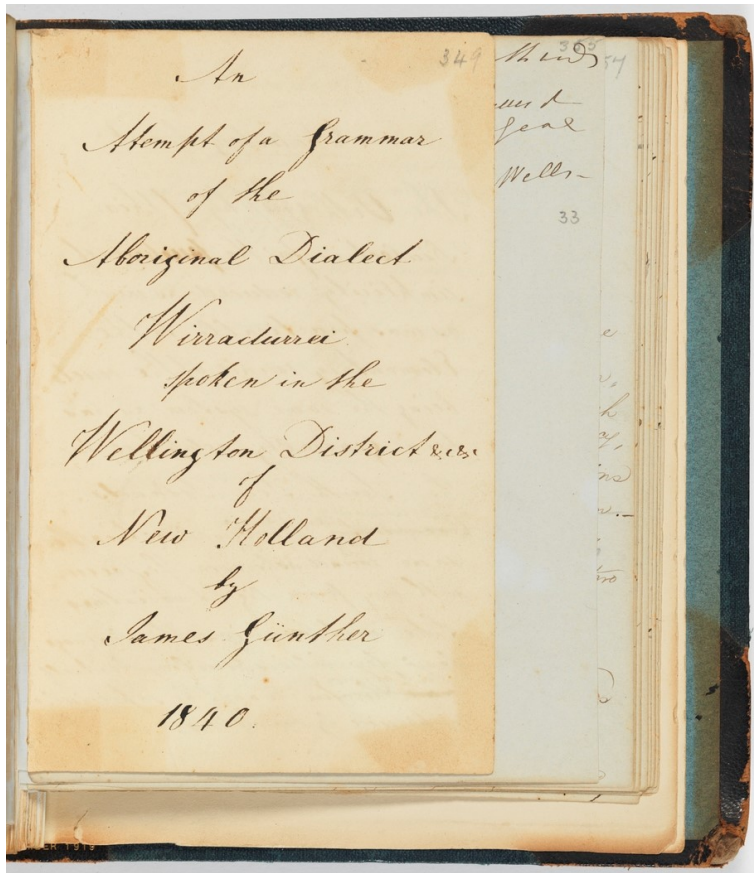 349
An
Attempt of a Grammar
of the
Aboriginal Dialect
Wirradurrei
spoken in the
Wellington District &c &c
of
New Holland
by
James Günther
1840.
355
54
Wells-
33
1919